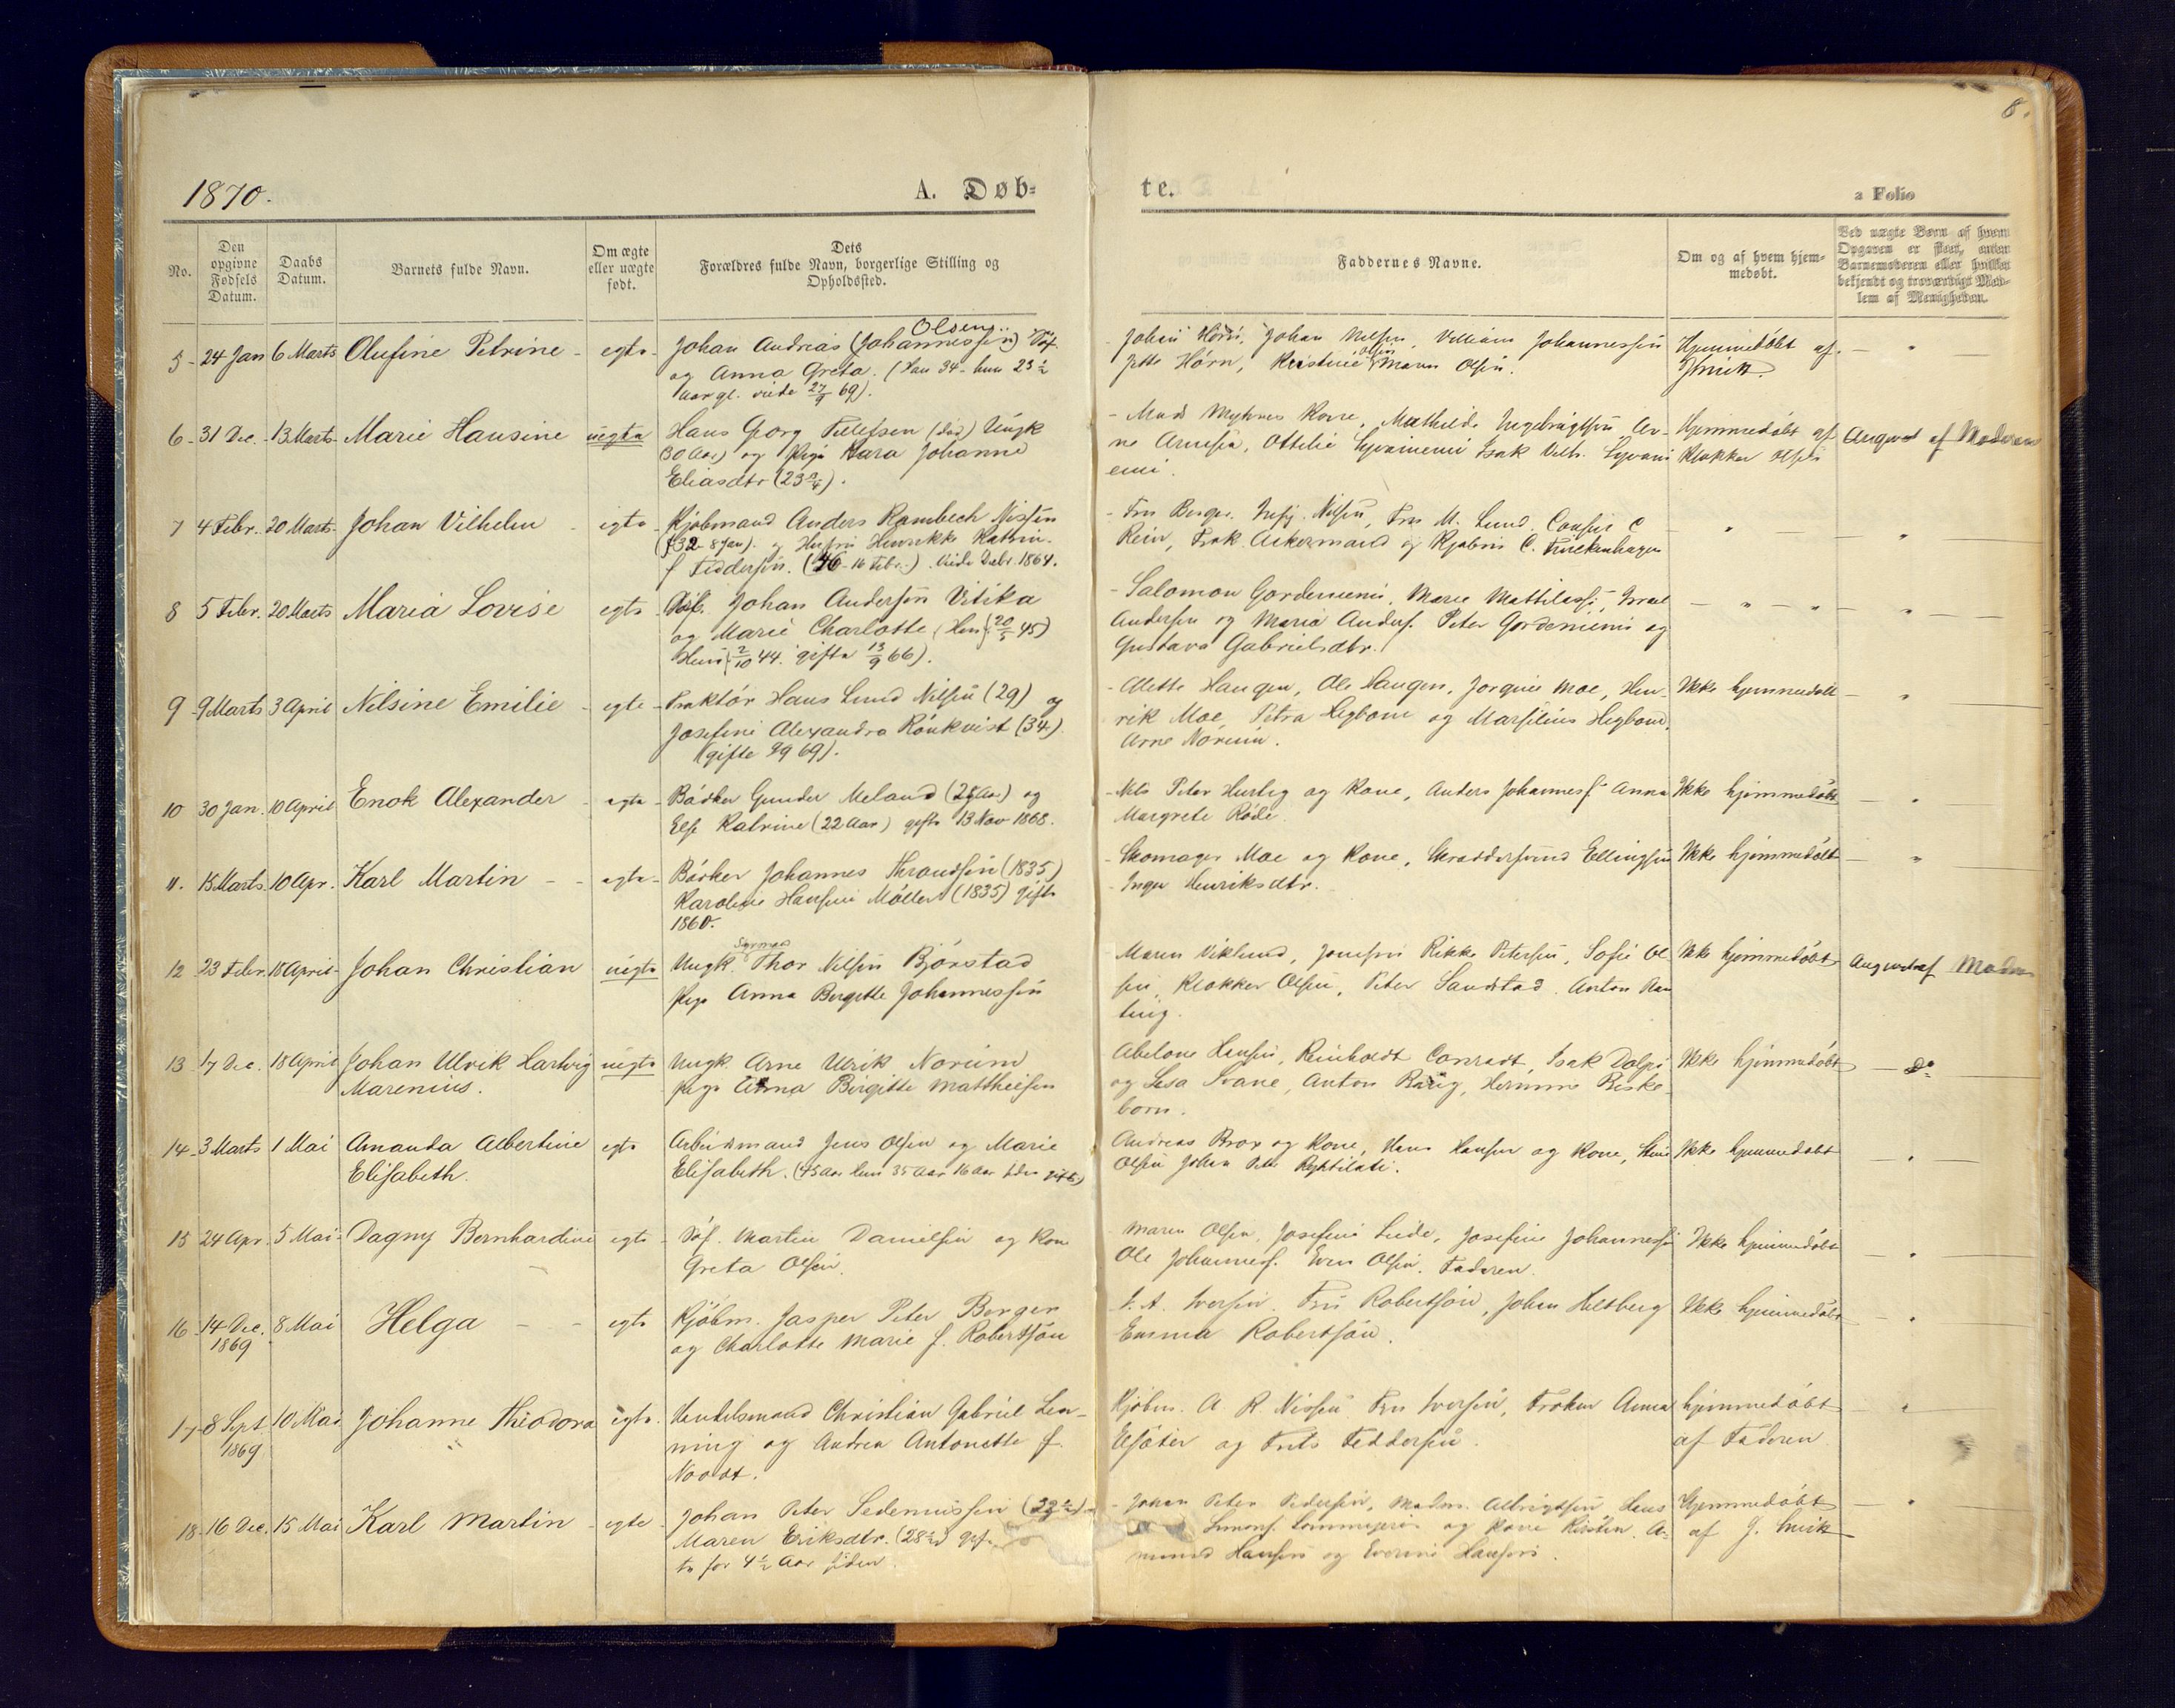 8.
1870.
A. Døb-
te.
2 Folio
No.
Den
opgivne
Fødsels
Datum.
Daabs
Datum.
Barnets fulde Navn.
Om ægte
eller uægte
født.
Dets
Forældres fulde Navn, borgerlige Stilling og
Opholdssted.
Faddernes Navne.
Om og af hvem hjem-
medøbt.
Ved uægte Børn af hvem
Opgaven er skeet, enten
Barnemoderen eller hvilket
bekjendt og troværdigt Med-
lem af Menigheden.
5 - 24 Jan 6 Marts Olufine Petrine - egte -
Olsen
Johan Andreas (Johannessen)
og Anna Greta. (Han 34 - hun 23 ½
Aar gl. viede 27/9 69).
Johan Nilsen, Villiam Johannessen
Hørn, Kristine Olsen Maren Olsen.
Hjemmedøbt af
6 - 31 Dec. - 13 Marts - Marie Hansine uegte
Hans Georg Tellefsen (død) Ungk
(30 Aar) og Pige Kara Johanne
Eliasdtr (23 ¾).
Mads Myhres Kone, Mathilde
ne Arnesen, Ottilie Isak Vilh.
Hjemmedøbt af
Klokker Olsen
Angivet af Moderen
7 4 Febr. - 20 Marts - Johan Vilhelm - egte -
Kjøbmand Anders Rambech Nissen
(32 - 8 Jan). og Hustru Henrikke Kathrin.
f Feddersen. (46 - 16 Febr.). Viede Debr 1864.
Fru Berger. Nissen, Fru M. Lund. C
Rein, Frøk. Ackermand og Kjøbm C. Finckenhagen
8 5 Febr. 20 Marts Maria Lovise egte -
Johan Andersen Vitika
og Marie Charlotte (Han 20/5 45)
Hun 2/10 44. gifte 13/9 66).
Salomon Gordeniemi, Marie Mattilassi, Israel
Andersen og Maria Anders. Peter Gordeniemi og
Gustava Gabrielsdtr.
9 - 9 Marts 3 April Nilsine Emilie - egte -
Hans Lund Nilsen (29) og
Josefine Alexandra Rönkvist (34)
(gifte 69).
Alette Haugen, Ole Haugen, Jorgine Moe, Hen-
rik Moe, Petra Hegbom og Marselius Hegbom,
Arne Norum.
Ikke hjemmedøbt
10 30 Jan. 10 April Enok Alexander - egte -
Bødker Gunder Meland (28 Aar) og
Else Katrine (22 Aar) gifte 13 Nov 1868.
Nils Peter Hurtig og Kone, Anders Johanness. Anna
Margrete Røde.
Ikke hjemmedøbt
11. 15 Marts 10 Apr. Karl Martin - - egte -
Bødker Johannes Throndsen (1835)
Karoline Hansine Möller (1835) gifte
1860.
Skomager Moe og Kone, Ellingsen
Inger Henriksdtr.
Ikke hjemmedøbt
12 23 Febr. 18 April Johan Christian uegte
Sømand
Ungk. Thor Nilsen Björstad
Pige Anna Bergitte Johannessen
Maren Viklund, Rikke Petersen, Sofie Ol-
sen, Klokker Olsen, Peter Sandstad. Anton
Ikke hjemmedøbt
Angivet af Moderen
13 17 Dec. 18 April Johan Ulrik Hartvig uegte
Marenius.
Ungk. Arne Ulrik Norum
Pige Anna Birgitte Matthiesen
Abelone Hansen, Reinholdt Conradt, Isak
og Lisa Svane, Anton
born.
Ikke hjemmedøbt
Do
14 - 3 Marts 1 Mai Amanda Albertine egte
Elisabeth.
Arbeidsmand Jens Olsen og Marie
Elisabeth. (45 Aar hun 35 Aar 16 Aar siden gifte)
Andreas Brox og Kone, Hans Hansen og Kone,
Olsen Johan Petter
Ikke hjemmedøbt
15 24 Apr. 5 Mai Dagny Bernhardine egte -
Martin Danielsen og Kone
Greta Olsen.
Maren Olsen, Josefine Johannessen
Ole Johannes. Even Olsen. Faderen.
Ikke hjemmedøbt
16 14 Dec. 8 Mai Helga - - egte
1869
Kjøbm. Jasper Peter Berger
og Charlotte Marie f. Robertson
Iversen. Fru Robertson, Johan Heltberg
Emma Robertson.
Ikke hjemmedøbt
17 - 8 Sept 10 Mai Johanne Theodora egte.
1869
Handelsmand Christian Gabriel Len-
ning og Andrea Antonette f.
Noodt.
Kjøbm. A R Nissen Fru Iversen, Frøken Anna
og Frits Feddersen.
hjemmedøbt
af Faderen
18 - 16 Dec. 15 Mai Karl Martin - egte
Johan Peter Sedeniussen (32 ½)
Maren Eriksdtr. (28 ½) gif-
te for 4 ½ Aar siden.
Johan Peter Pedersen, Madm. Albrigtsen Hans
og Kone Kirsten. A-
mund Hansen og Hansen.
Hjemmedøbt
af J.